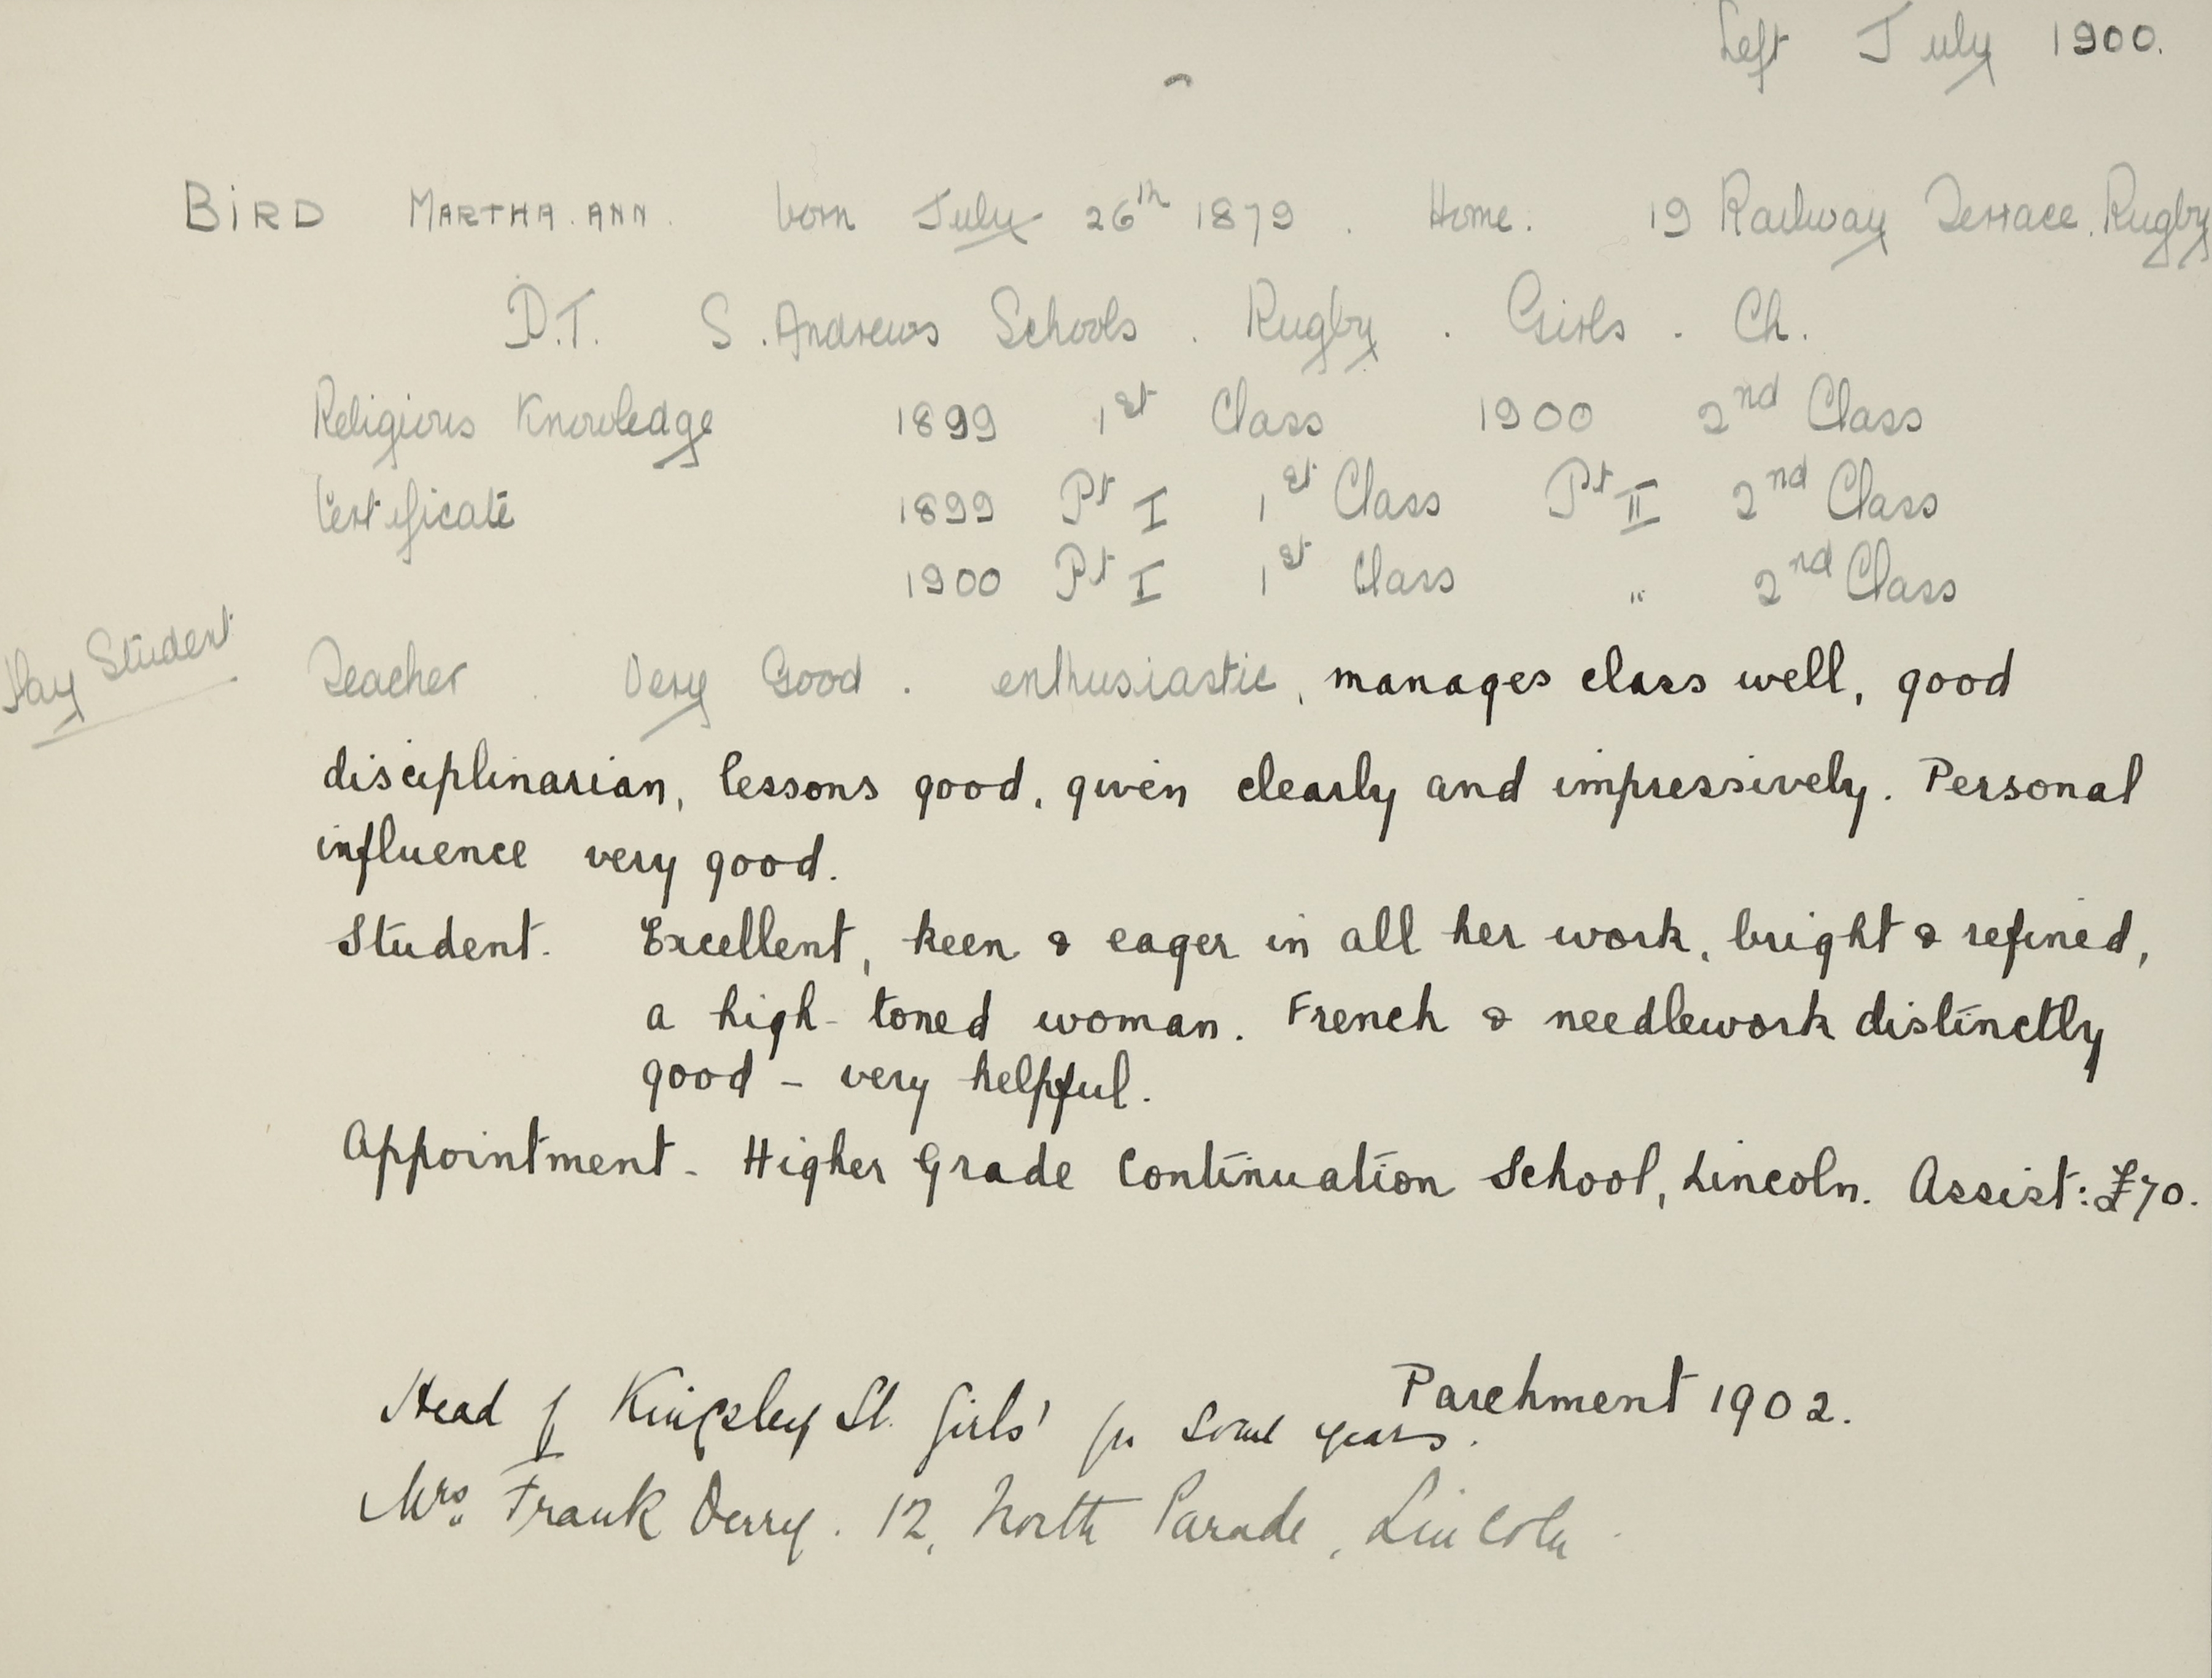 Left July 1900.
BIRD MARTHA. ANN. born July 26th 1879. Home. 19 Railway Terrace. Rugby
D.T. S. Andrews Schools. Rugby. Girls. Ch.
Religious Knowledge 1899 1st Class 1900 2nd Class
Certificate 1899 Pt I 1st Class Pt II 2nd Class
1900 Pt I 1st Class " 2nd Class
Day Student
Teacher. Very Good. enthusiastic, manages class well, good
disciplinarian, lessons good, given clearly and impressively. Personal
influence very good.
Student. Excellent, keen & eager in all her work, bright & refined,
a high-toned woman. French & needlework distinctly
good - very helpful.
Appointment - Higher Grade Continuation School, Lincoln. Assist: £70.
Parchment 1902.
Head of Kingsley St. Girls' for some years.
Mrs. Frank Derry. 12, North Parade, Lincoln.